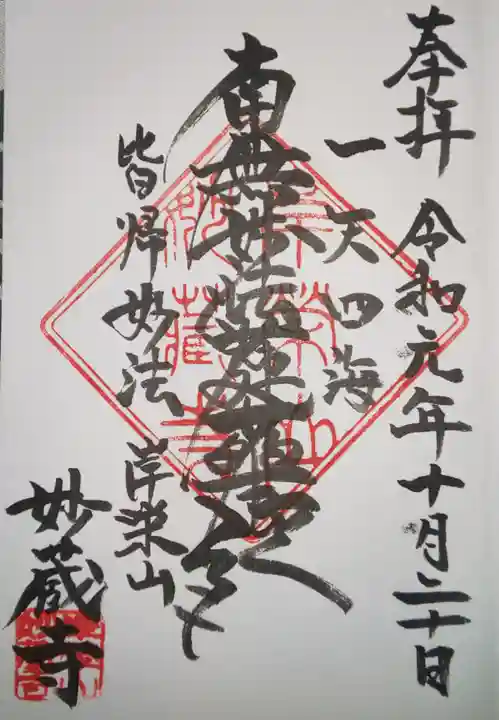 奉拝 令和元年十月二十日
一天四海
南無妙法蓮華経
皆帰妙法
岸栄山
妙蔵寺